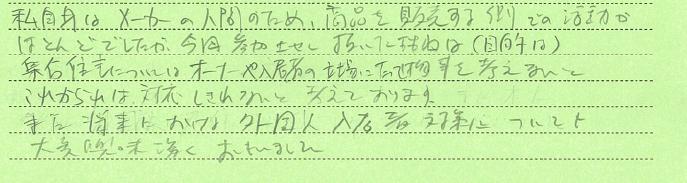 私自身は メーカーの人間のため、商品を販売する側での活動が
ほとんどでしたが、今回参加させて頂いて
集合住宅については オーナーや入居者の立場に立って物事を考えないと
これからは 対応しきれないと 考えております
また 将来における 外国人 入居者対策に ついても
大変興味深く おもいました